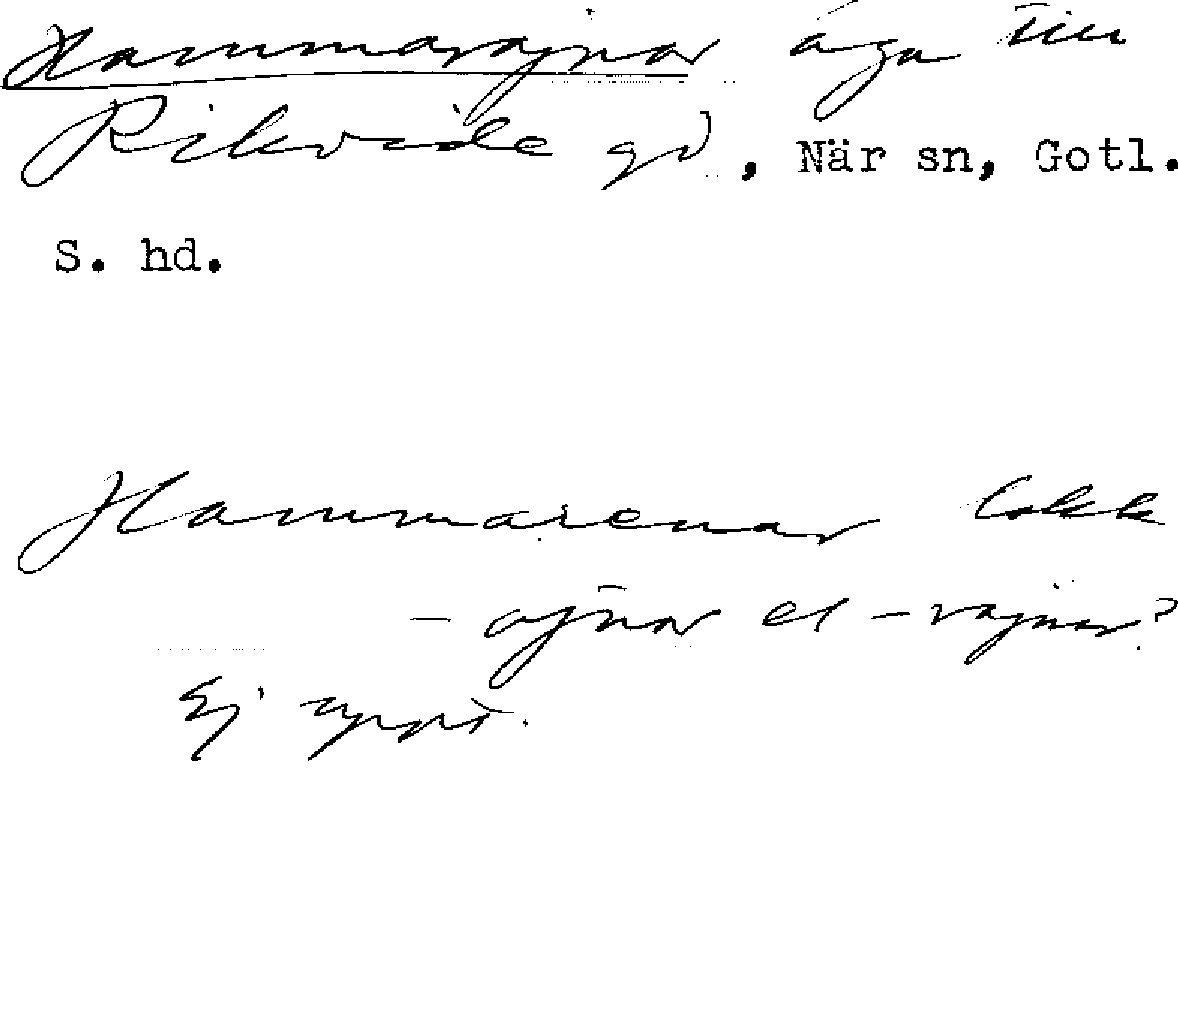 Hammarajnar äga till
Rikvide gd, När sn, Gotl.
S. hd.
Hammarenar
-ajnar el -vajnar?
Ej uppt.